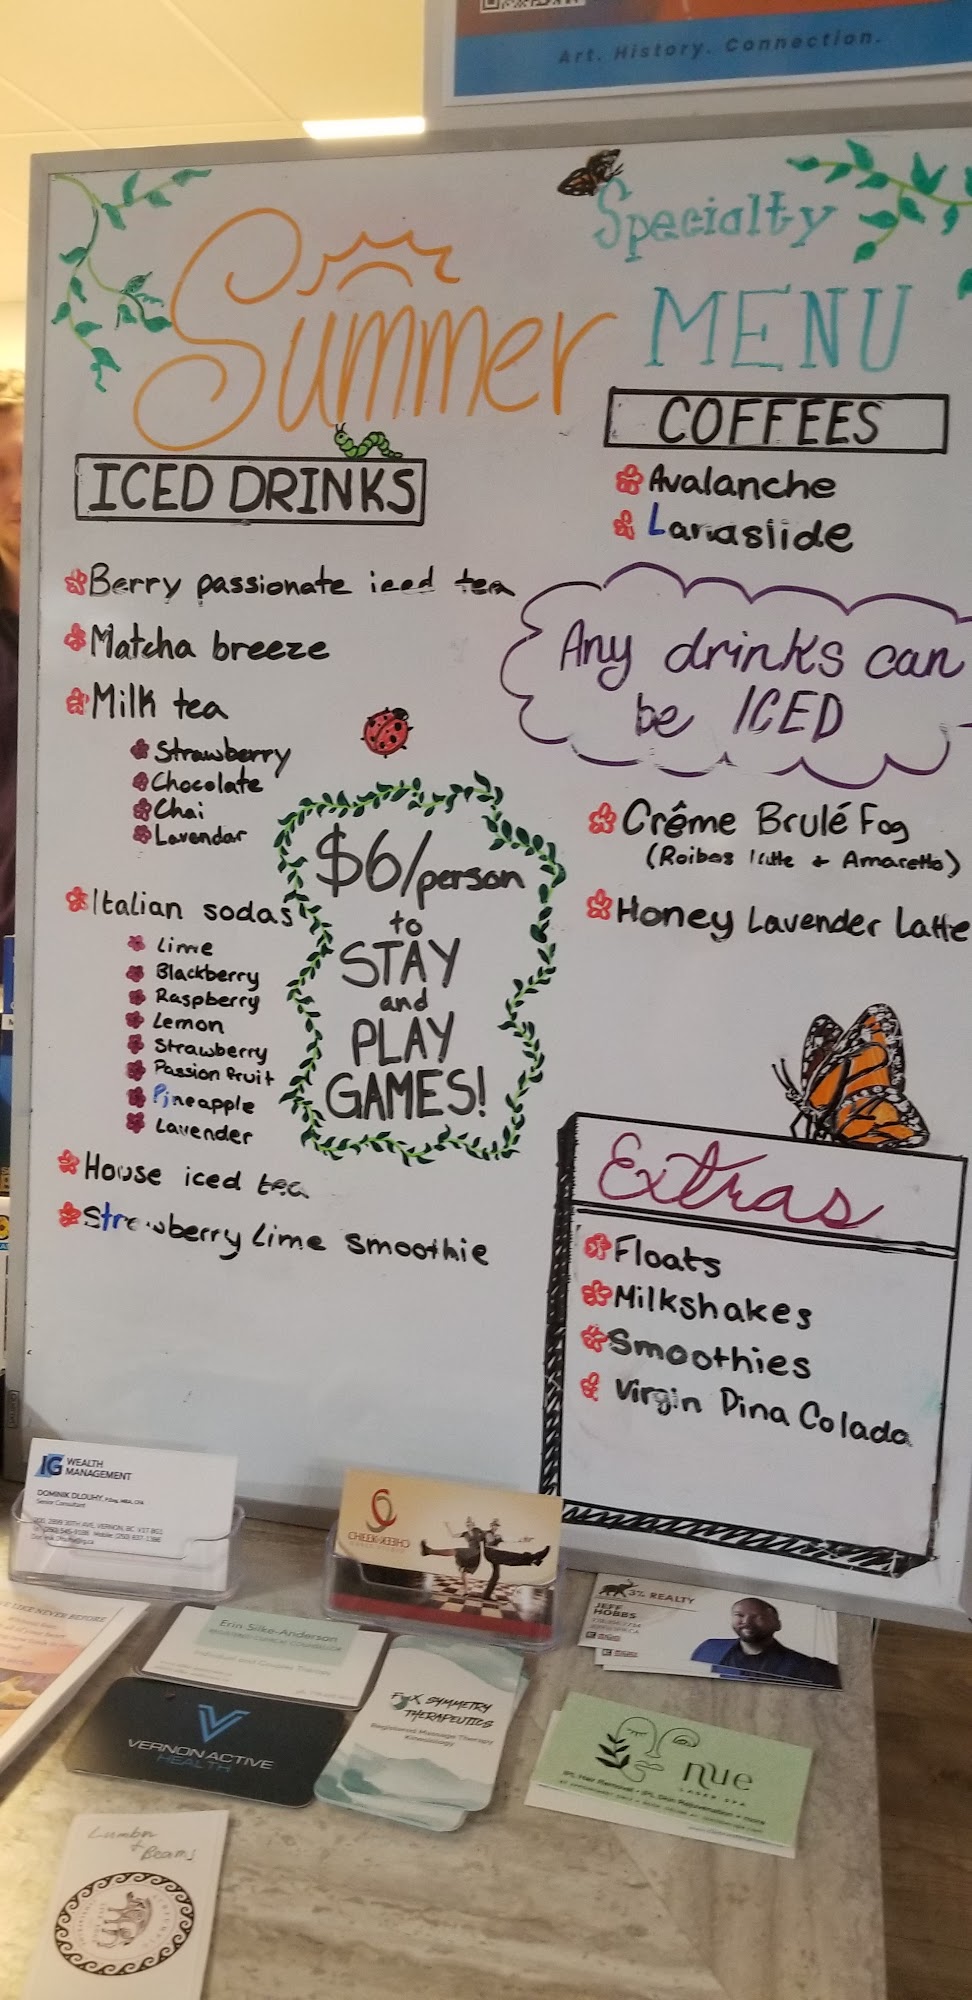 Art. History. Connection.
Summer
Specialty
MENU
ICED DRINKS
Berry passionate iced tea
Matcha breeze
Milk tea
Strawberry
Chocolate
Chai
Lavendar
Italian sodas
Lime
Blackberry
Raspberry
Lemon
Strawberry
Passion fruit
Pineapple
Lavender
House iced tea
Strawberry Lime smoothie
$6/person
to
STAY
and
PLAY
GAMES!
COFFEES
Avalanche
Landslide
Any drinks can
be ICED
Crême Brulé Fog
(Roibos latte + Amaretto)
Honey Lavender Latte
Extras
Floats
Milkshakes
Smoothies
Virgin Pina Colada
IG WEALTH
MANAGEMENT
DOMINIK DLOUHY,
Senior Consultant
CHEEK2CHEEK
3% REALTY
JEFF
HOBBS
LIKE NEVER BEFORE
Erin Silke-Anderson
Individual and Couples Therapy
VERNON ACTIVE
HEALTH
FIX SYMMETRY
THERAPEUTICS
Registered Massage Therapy
Kinesiology
nue
LASER SPA
IPL Hair Removal • IPL Skin Rejuvenation + more
Lumber
+
Beams